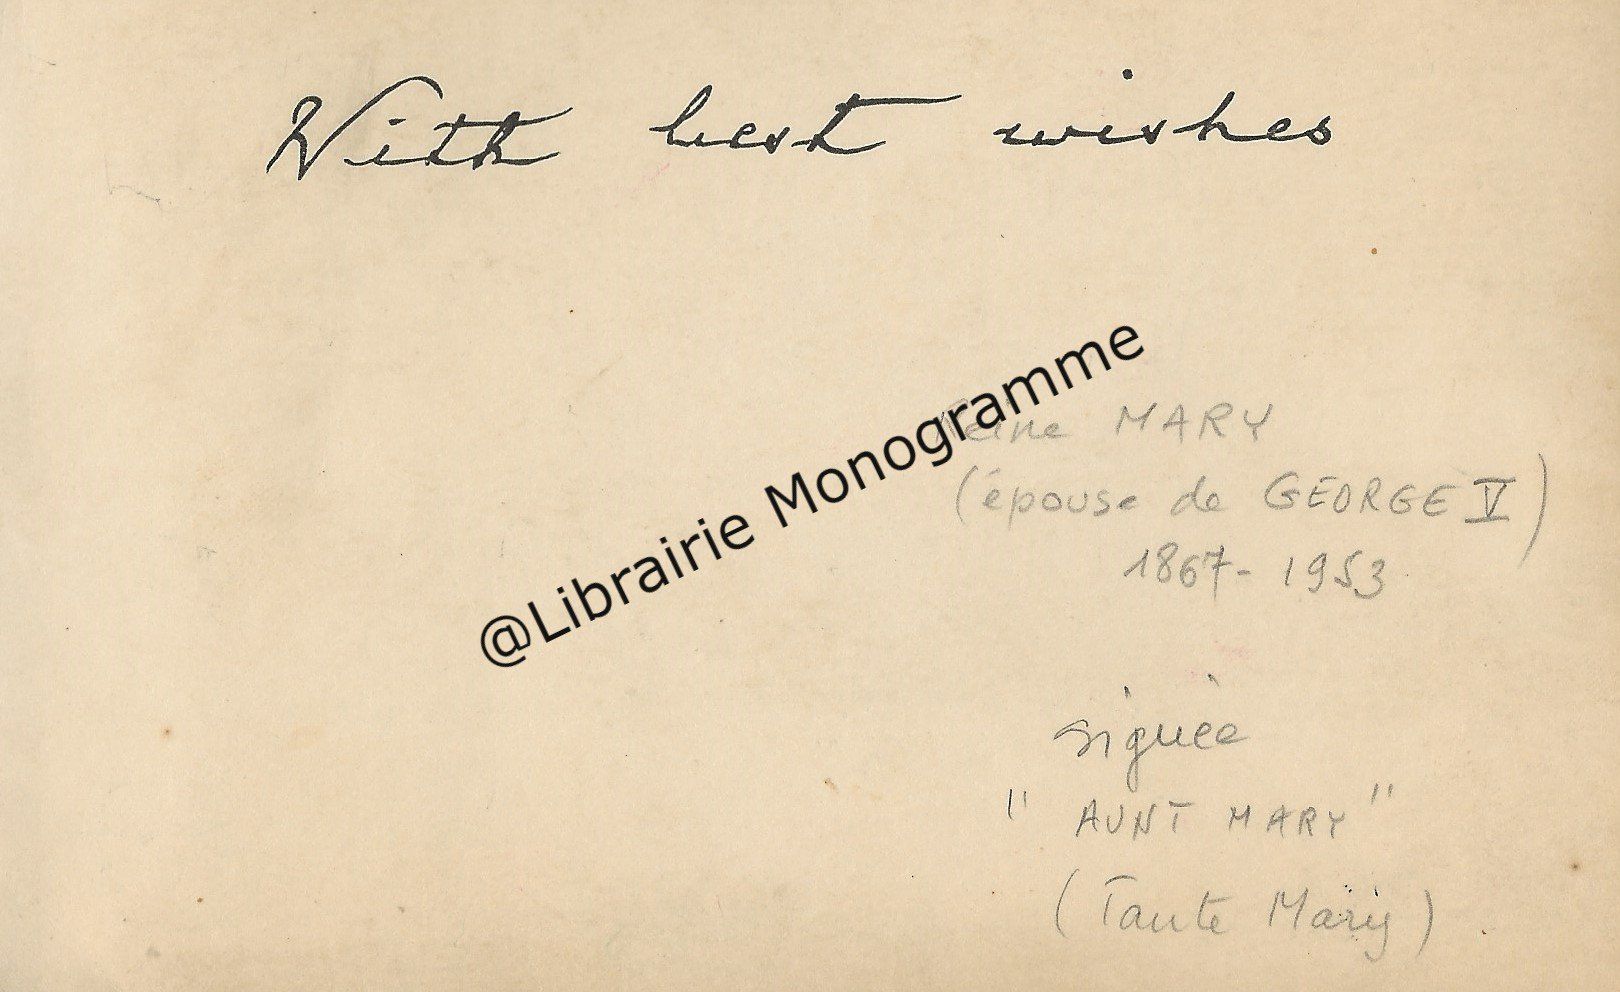 With best wishes
@Librairie Monogramme
Reine MARY
(épouse de GEORGE V)
1867-1953
signée
" AUNT MARY "
(Tante Mary)